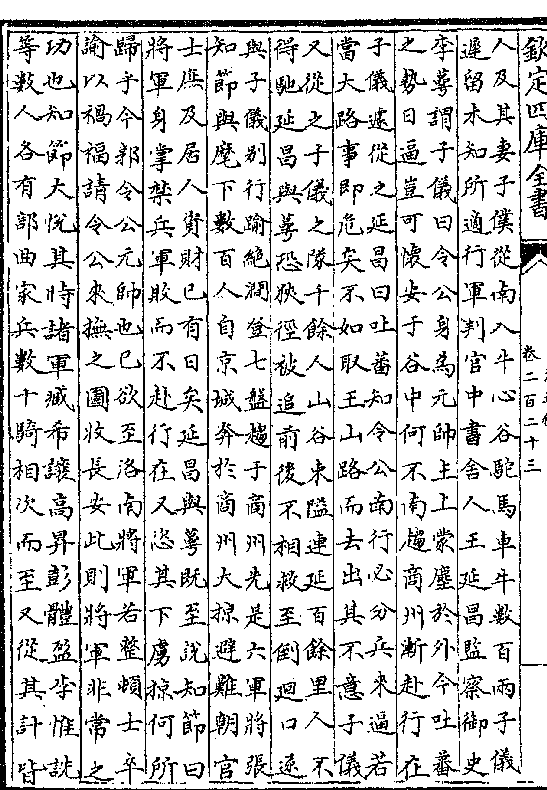 欽定四庫全書
卷二百二十三
人及其妻子僕從南入牛心谷駝馬車牛數百兩子儀
遲留未知所適行軍判官中書舍人王延昌監察御史
李萼謂子儀曰令公身為元帥主上蒙塵於外今吐蕃
之勢日逼豈可懷安于谷中何不南趨商州漸赴行在
子儀遽從之延昌曰吐蕃知令公南行必分兵來逼若
當大路事即危矣不如取王山路而去出其不意子儀
又從之子儀之隊千餘人山谷束隘連延百餘里人不
得馳延昌與萼恐狹徑被追前後不相救至倒廻口遂
與子儀別行踰絶澗登七盤趨于商州先是六軍將張
知節與麾下數百人自京城奔於商州大掠避難朝官
士庶及居人貲財已有日矣延昌與萼既至說知節曰
將軍身掌禁兵軍敗而不赴行在又恣其下虜掠何所
歸乎今郭令公元帥也已欲至洛南將軍若整頓士卒
諭以禍福請令公來撫之圖收長安此則將軍非常之
功也知節大悅其時諸軍臧希讓高昇彭體盈李惟詵
等數人各有部曲家兵數十騎相次而至又從其計皆